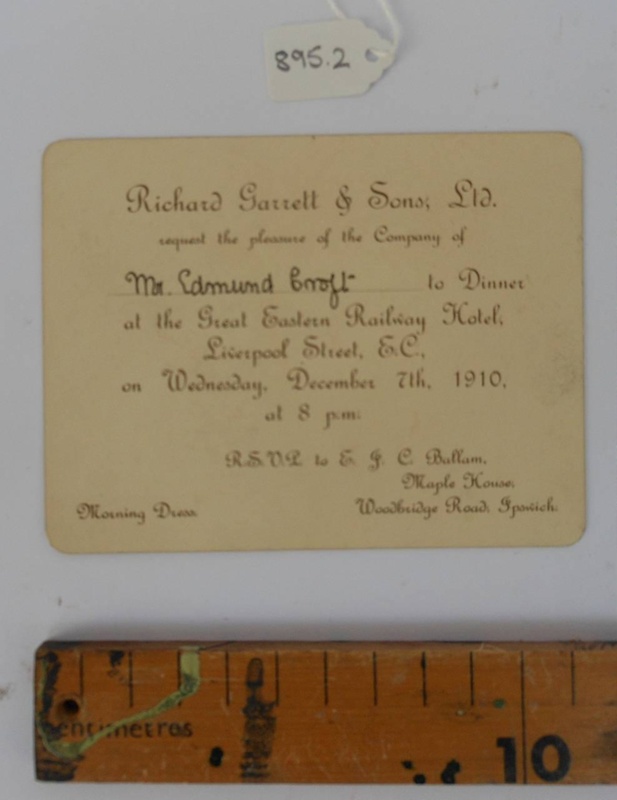 895.2
Richard Garrett & Sons, Ltd.
request the pleasure of the Company of
Mr. Edmund Croft to Dinner
at the Great Eastern Railway Hotel,
Liverpool Street, E.C.,
on Wednesday, December 7th, 1910,
at 8 p.m.
R.S.V.P. to E. J. C. Ballam,
Maple House,
Morning Dress. Woodbridge Road, Ipswich.
centimetres
10